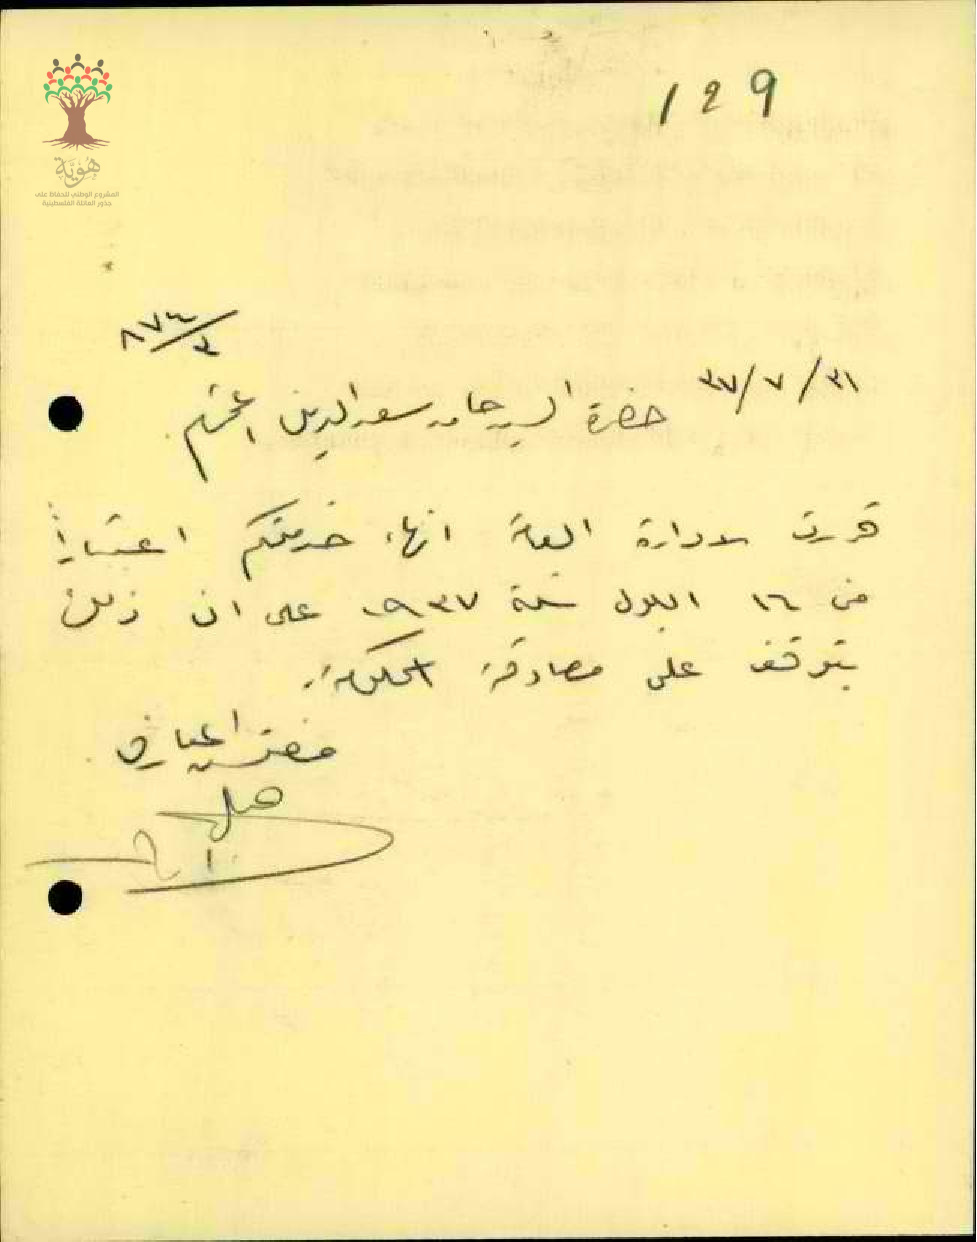 129
هُوِيَّة
المشروع الوطني للحفاظ على
جذور العائلة الفلسطينية
٣١/٧/٣٧
حضرة السيد حامد سعد الدين المحترم
قررت الادارة العامة انهاء خدمتكم اعتباراً
من ١٦ ايلول سنة ١٩٣٧ على ان ذلك
يتوقف على مصادقة الحكومة.
مفتش المعارف